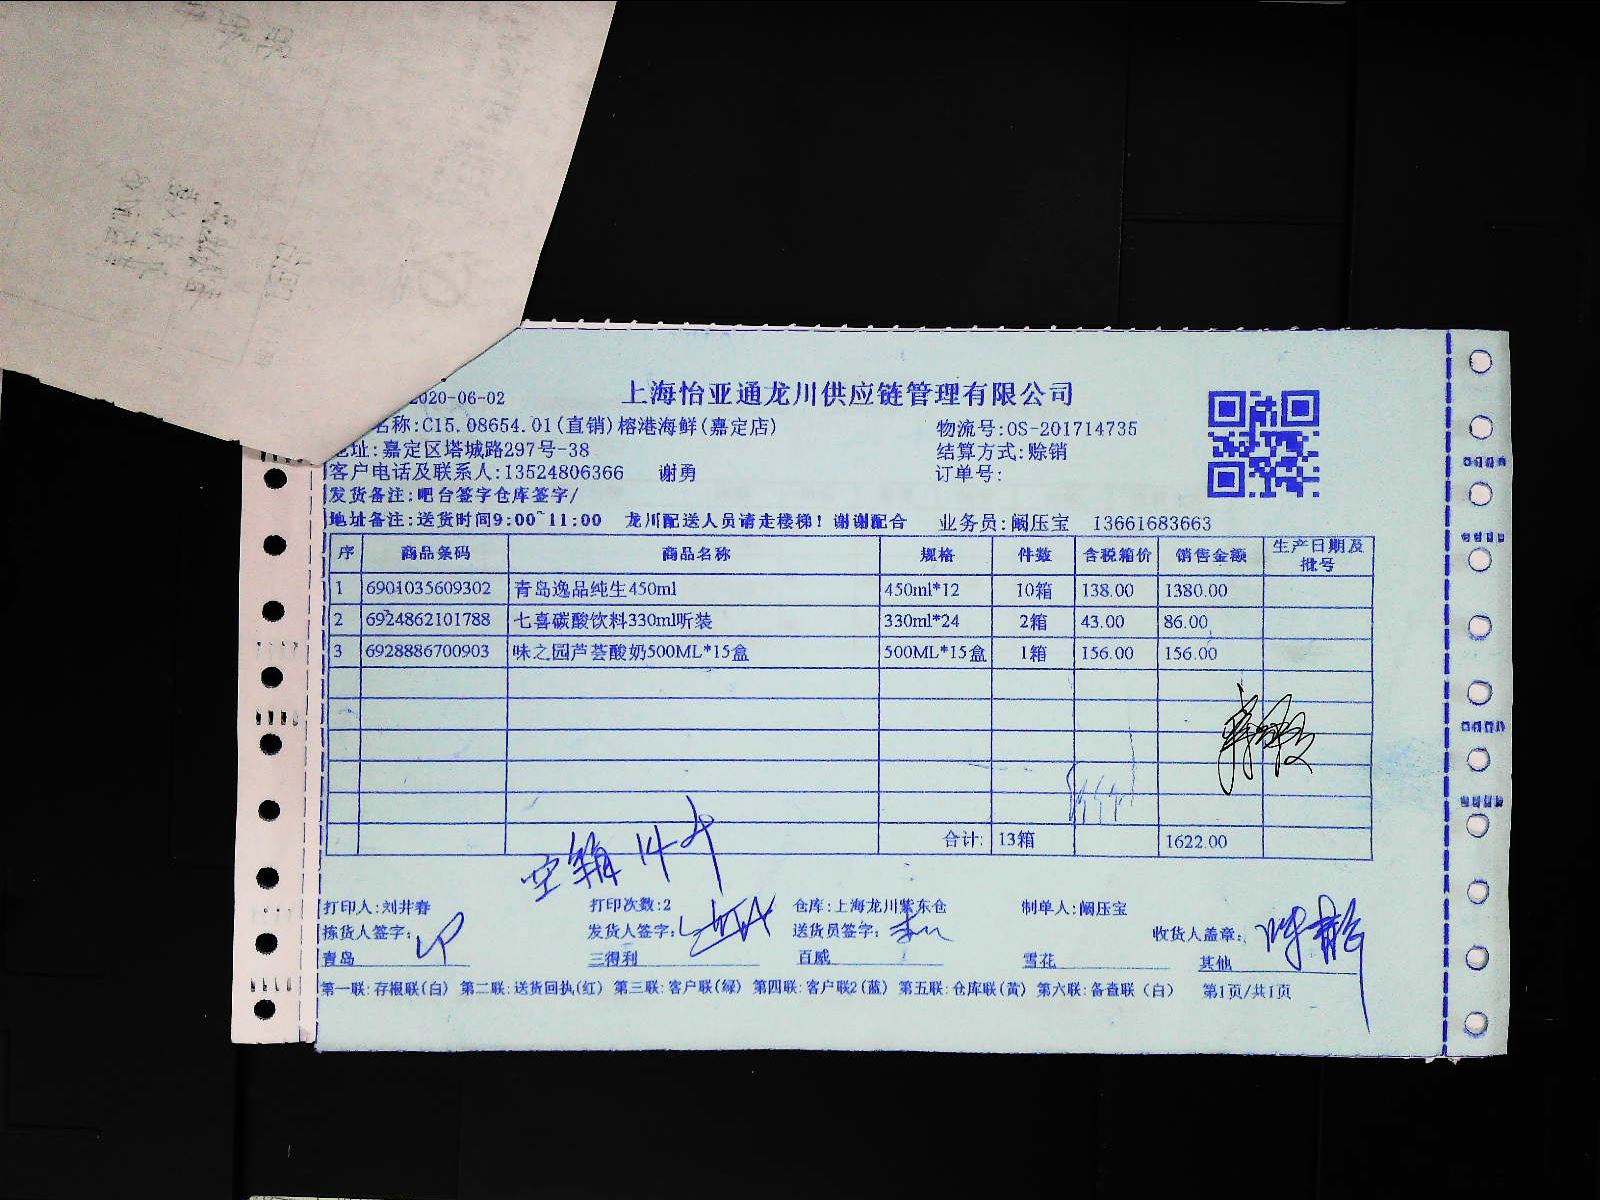 2020-06-02 上海怡亚通龙川供应链管理有限公司
名称:C15.08654.01(直销)榕港海鲜(嘉定店) 物流号:OS-201714735
地址:嘉定区塔城路297号-38 结算方式:赊销
客户电话及联系人:13524806366 谢勇 订单号:
发货备注:吧台签字仓库签字/
地址备注:送货时间9:00~11:00 龙川配送人员请走楼梯!谢谢配合 业务员:阚压宝 13661683663
序 商品条码 商品名称 规格 件数 含税箱价 销售金额 生产日期及批号
1 6901035609302 青岛逸品纯生450ml 450ml*12 10箱 138.00 1380.00
2 6924862101788 七喜碳酸饮料330ml听装 330ml*24 2箱 43.00 86.00
3 6928886700903 味之园芦荟酸奶500ML*15盒 500ML*15盒 1箱 156.00 156.00
合计: 13箱 1622.00
空箱14
打印人:刘井春 打印次数:2 仓库:上海龙川紫东仓 制单人:阚压宝
拣货人签字: 发货人签字: 送货员签字: 收货人盖章:
青岛 三得利 百威 雪花 其他
第一联:存根联(白) 第二联:送货回执(红) 第三联:客户联(绿) 第四联:客户联2(蓝) 第五联:仓库联(黄) 第六联:备查联(白) 第1页/共1页